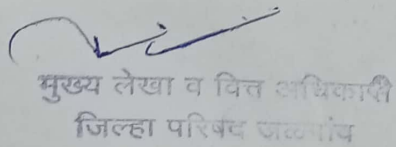 मुख्य लेखा व वित्त अधिकारी
जिल्हा परिषद जळगांव